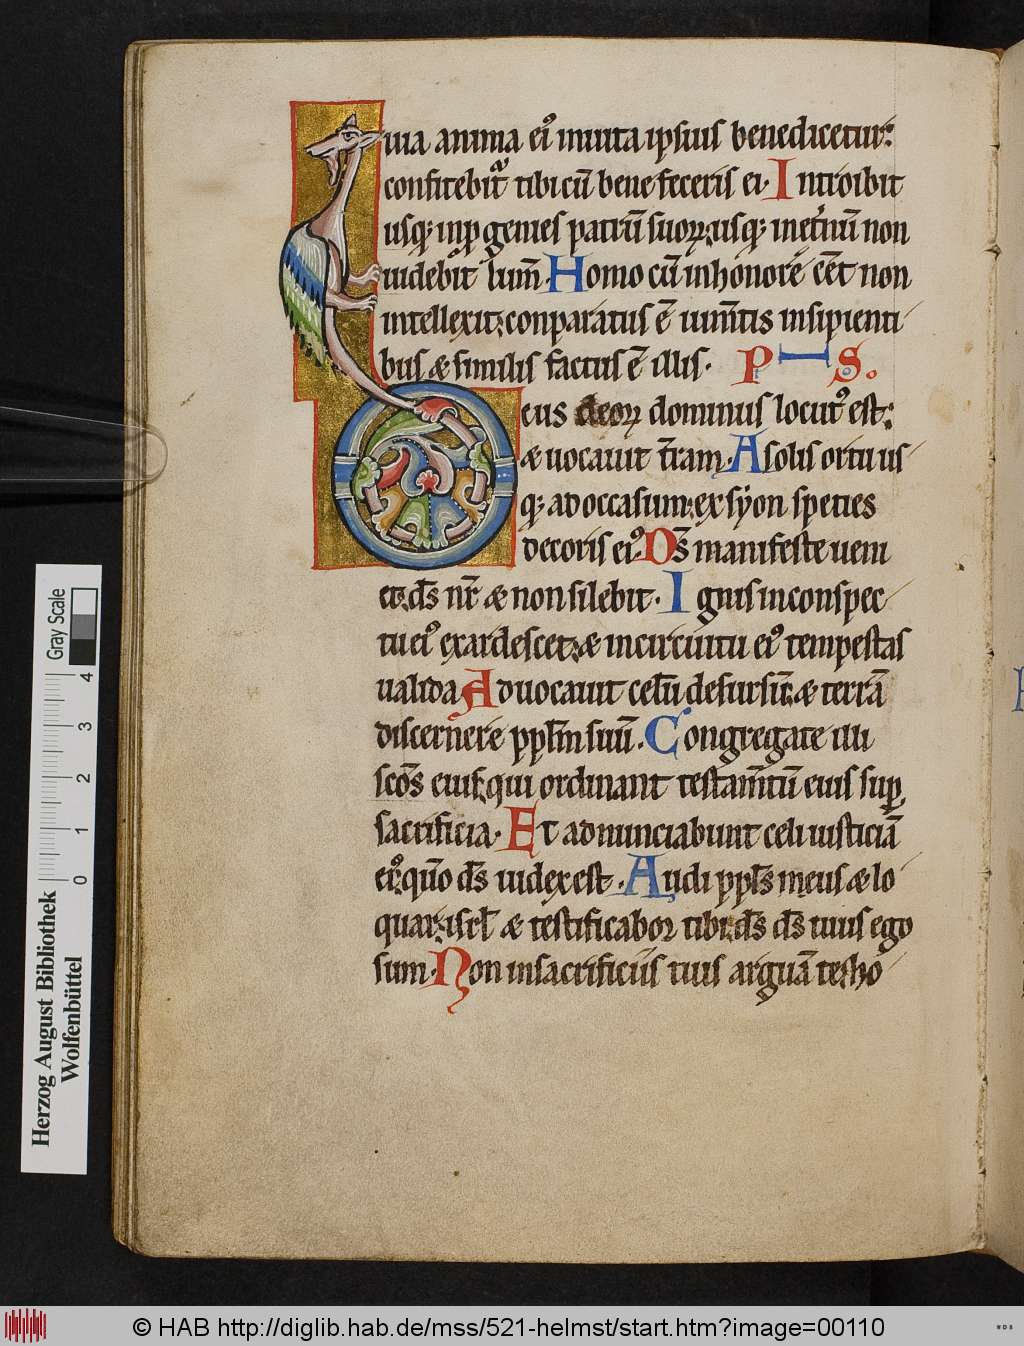 uia anima ei' inuita ipsius benedicetur:
confitebit tibi cū bene feceris ei. Introibit
usq; inp genies patrū suoꝝ: usq; inet'nū non
uidebit lum̄. Homo cū inhonore ēet non
intellexit: conparatus ē ium̄tis insipienti
bus & similis factus ē illis. PS.
Deus deoꝝ dominus locut' est:
& uocauit t̄ram. A solis ortu us
q; ad occasum: ex syon species
decoris ei' D̄s manifeste ueni
et: d̄s nr̄ & non silebit. Ignis inconspec
tu ei' exardescet: & incircuitu ei' tempestas
ualida Aduocauit celū desursū: & terrā
discernere pplm̄ suū. Congregate illi
sc̄os eius: qui ordinant testam̄tū eius sup
sacrificia. Et adnunciabunt celi iusticiā
ei': qm̄o d̄s iudex est. Audi ppl̄s meus & lo
quar: isrl̄ & testificabor tibi: d̄s d̄s tuus ego
sum. Non insacrificiis tuis arguā te: ho
Herzog August Bibliothek
Wolfenbüttel
Gray Scale
0 1 2 3 4
© HAB http://diglib.hab.de/mss/521-helmst/start.htm?image=00110